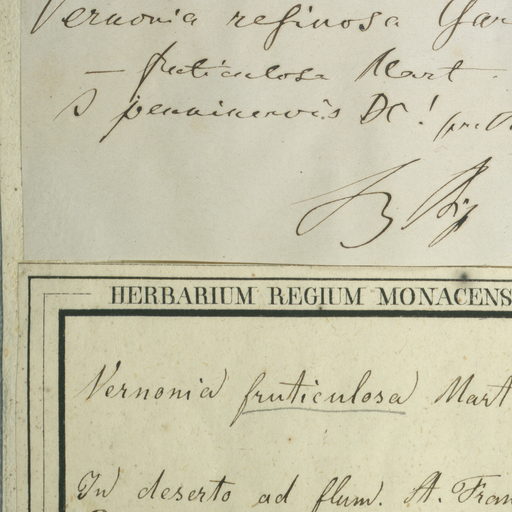 Vernonia resinosa Gar
— fruticulosa Mart.
β penninervis DC!
HERBARIUM REGIUM MONACENS
Vernonia fruticulosa Mart
In deserto ad flum. St. Fran